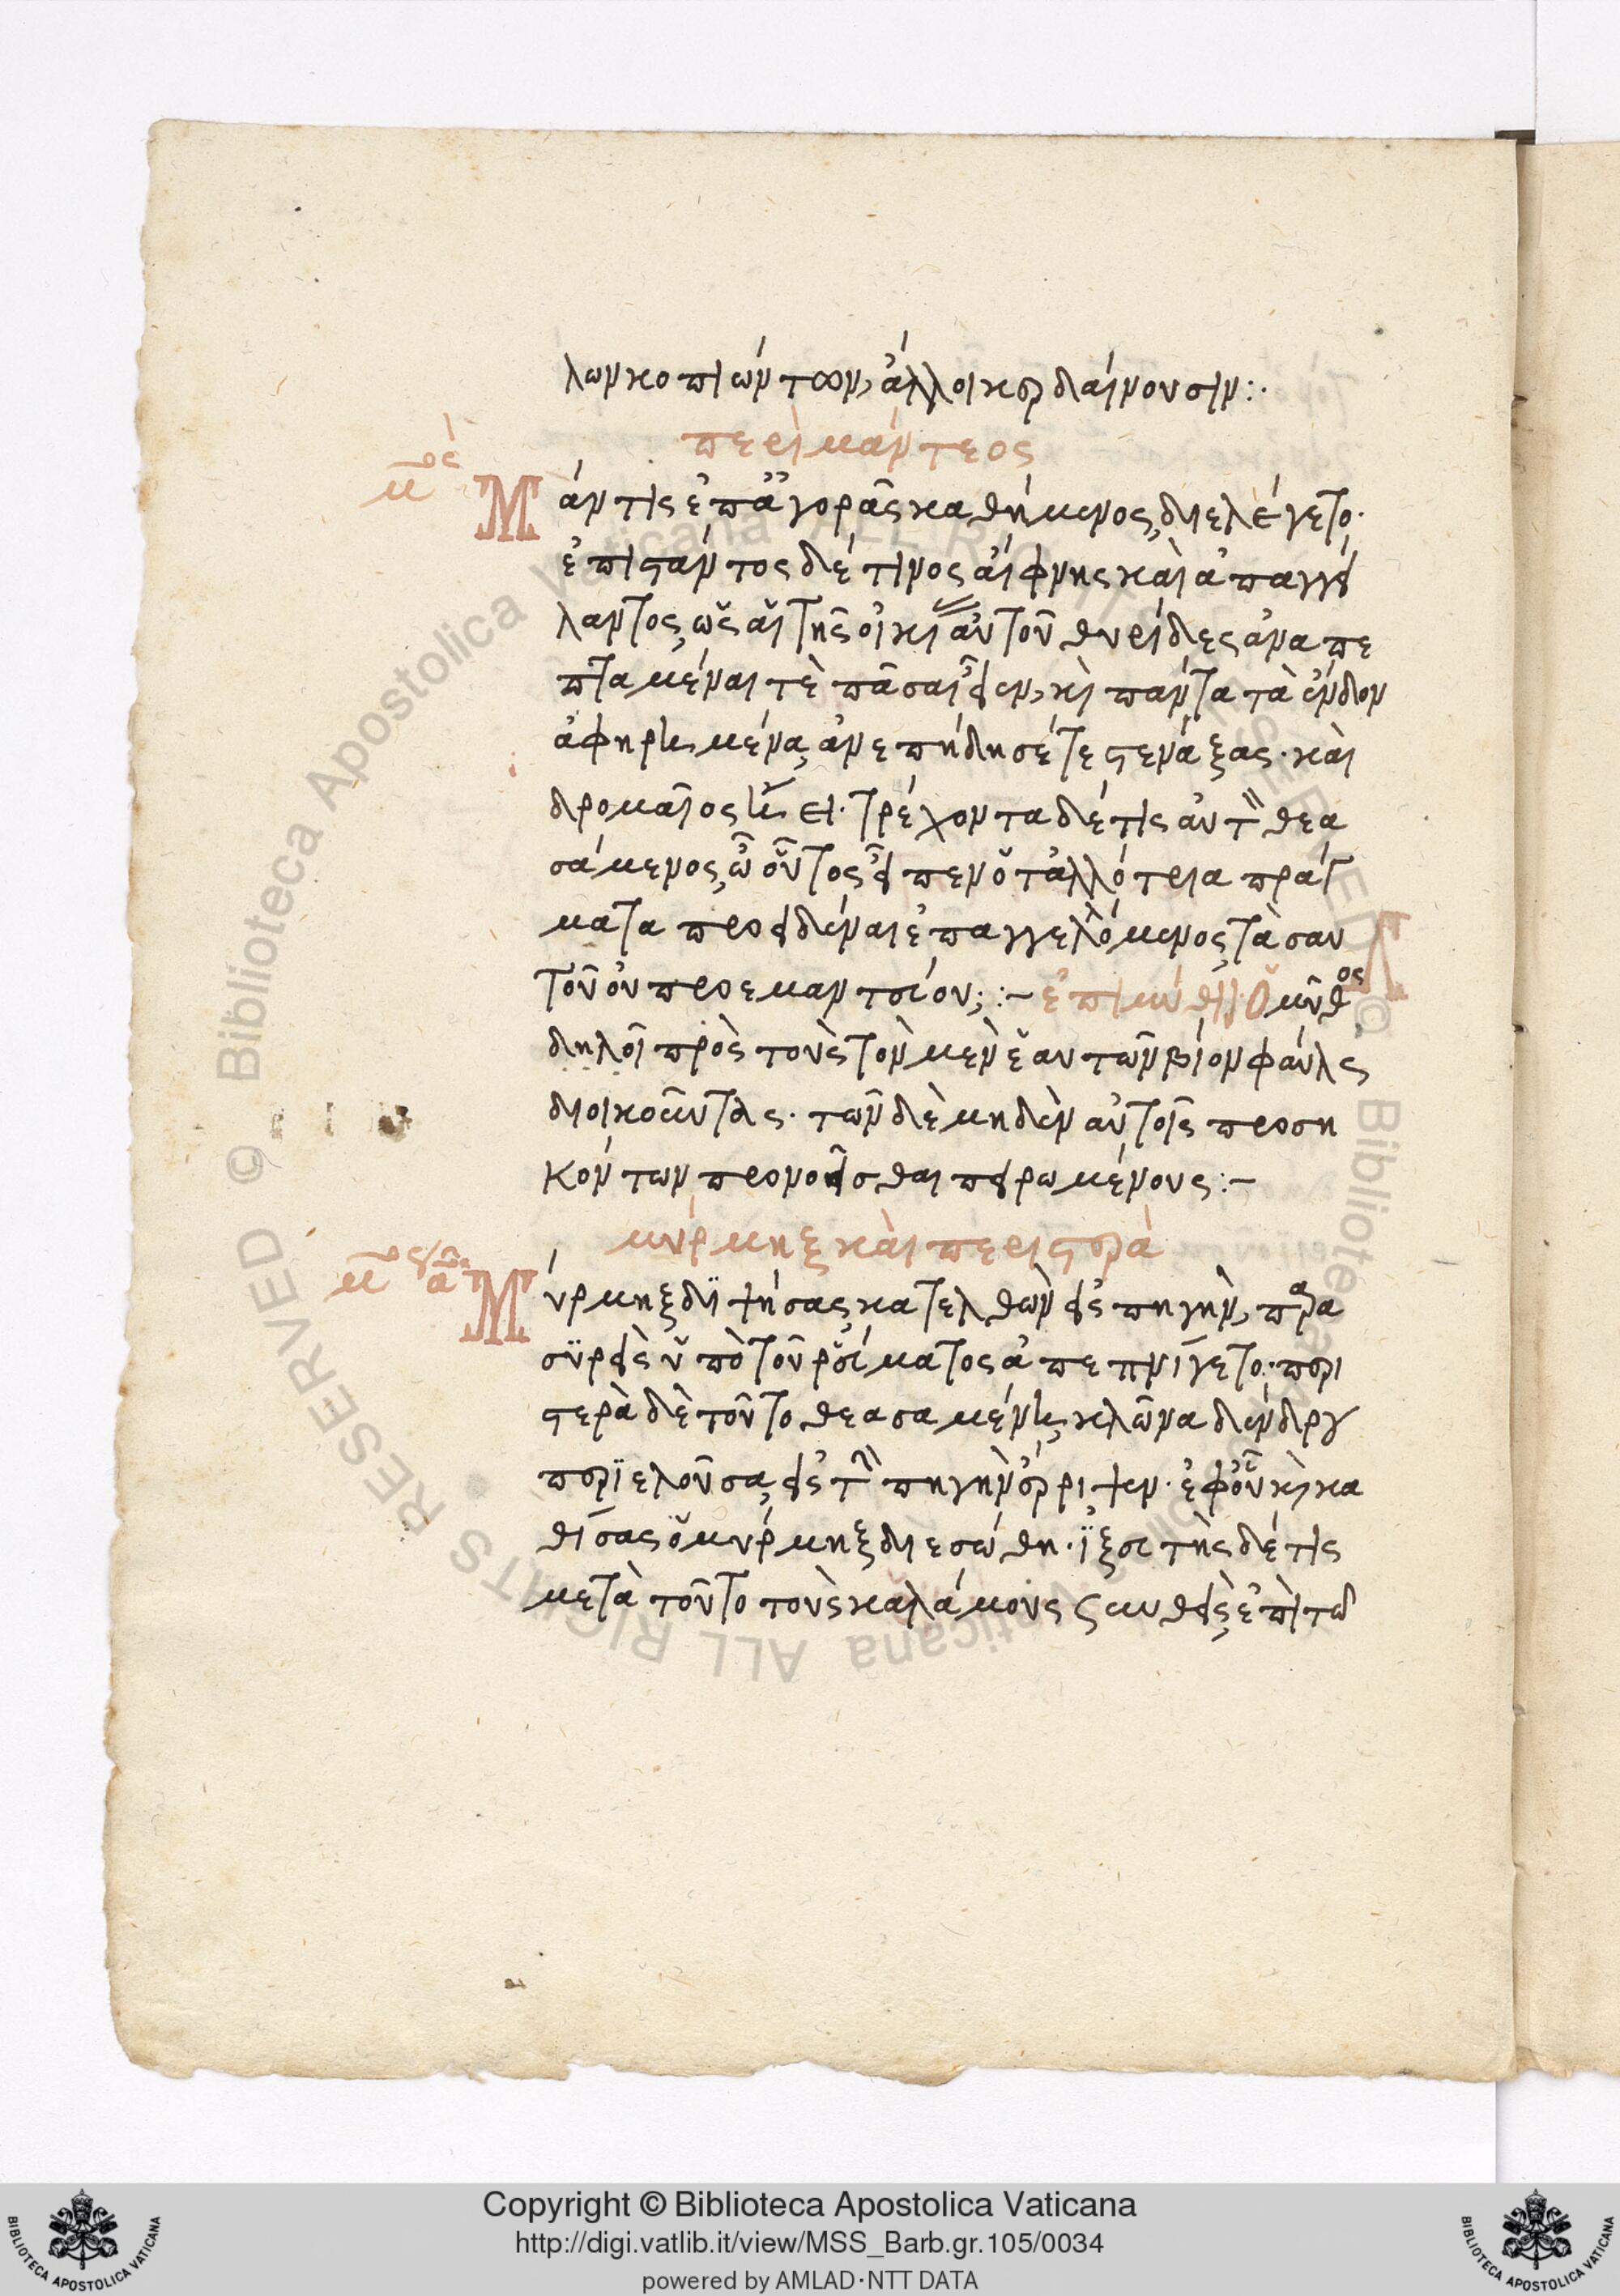 λων κοπιώντων, ἄλλοι κερδαίνουσιν:·
περὶ μάντεος
Μάντις ἐπ' ἀγορᾶς καθήμενος, διελέγετο·
ἐπιστάντος δέ τινος αἴφνης καὶ ἀπαγγεί
λαντος, ὡς αἱ τῆς οἰκίας αὐτοῦ θυρίδες ἀναπε
πταμέναι τὲ πᾶσαι εἶεν, καὶ πάντα τὰ ἔνδον
ἀφηρημένα, ἀνεπήδησέ τε στενάξας· καὶ
δρομαῖος ἤει· τρέχοντα δέ τις αὐτὸν θεα
σάμενος, ὦ οὗτος εἶπεν ὁ τἀλλότρια πράγ
ματα προειδέναι ἐπαγγελλόμενος, τὰ σαυ
τοῦ οὐ προεμαντεύου; :– ἐπιμύθιον Ὁ μῦθος
δηλοῖ πρὸς τοὺς τὸν μὲν ἑαυτῶν βίον φαύλως
διοικοῦντας· τῶν δὲ μηδὲν αὐτοῖς προση
κόντων προνοεῖσθαι πειρωμένους:–
μύρμηξ καὶ περιστερά
Μύρμηξ διψήσας, κατελθὼν εἰς πηγὴν, παρα
συρεὶς ὑπὸ τοῦ ῥεύματος ἀπεπνίγετο· περι
στερὰ δὲ τοῦτο θεασαμένη, κλῶνα δένδρου
περιελοῦσα, εἰς τὴν πηγὴν ἔρριψεν· ἐφ' οὗ καὶ κα
θίσας ὁ μύρμηξ διεσώθη· ἰξευτὴς δέ τις
μετὰ τοῦτο τοὺς καλάμους συνθεὶς, ἐπὶ τὸ
Copyright © Biblioteca Apostolica Vaticana
http://digi.vatlib.it/view/MSS_Barb.gr.105/0034
powered by AMLAD·NTT DATA
BIBLIOTECA APOSTOLICA VATICANA
BIBLIOTECA APOSTOLICA VATICANA